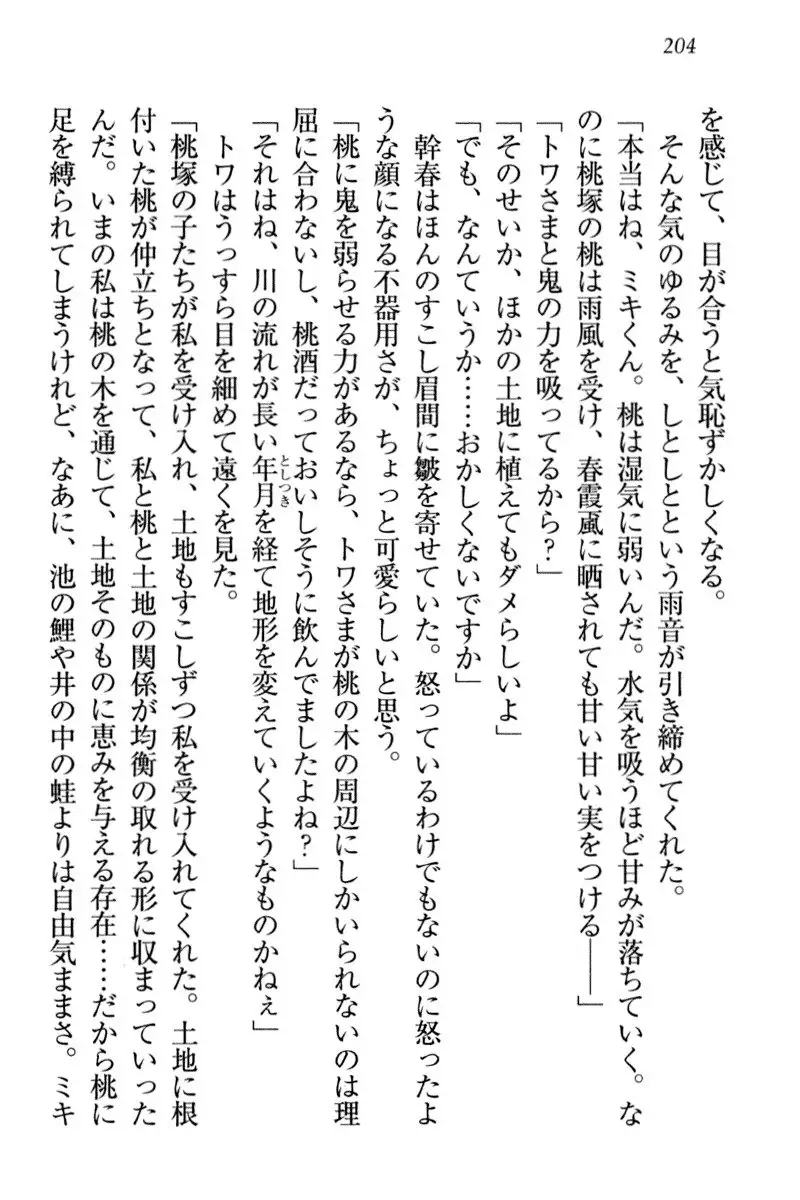 204
を感じて、目が合うと気恥ずかしくなる。
そんな気のゆるみを、しとしとという雨音が引き締めてくれた。
「本当はね、ミキくん。桃は湿気に弱いんだ。水気を吸うほど甘みが落ちていく。な
のに桃塚の桃は雨風を受け、春霞颪に晒されても甘い甘い実をつける――」
「トワさまと鬼の力を吸ってるから？」
「そのせいか、ほかの土地に植えてもダメらしいよ」
「でも、なんていうか……おかしくないですか」
幹春はほんのすこし眉間に皺を寄せていた。怒っているわけでもないのに怒ったよ
うな顔になる不器用さが、ちょっと可愛らしいと思う。
「桃に鬼を弱らせる力があるなら、トワさまが桃の木の周辺にしかいられないのは理
屈に合わないし、桃酒だっておいしそうに飲んでましたよね？」
「それはね、川の流れが長い年月としつきを経て地形を変えていくようなものかねぇ」
トワはうっすら目を細めて遠くを見た。
「桃塚の子たちが私を受け入れ、土地もすこしずつ私を受け入れてくれた。土地に根
付いた桃が仲立ちとなって、私と桃と土地の関係が均衡の取れる形に収まっていった
んだ。いまの私は桃の木を通じて、土地そのものに恵みを与える存在……だから桃に
足を縛られてしまうけれど、なあに、池の鯉や井の中の蛙よりは自由気ままさ。ミキ